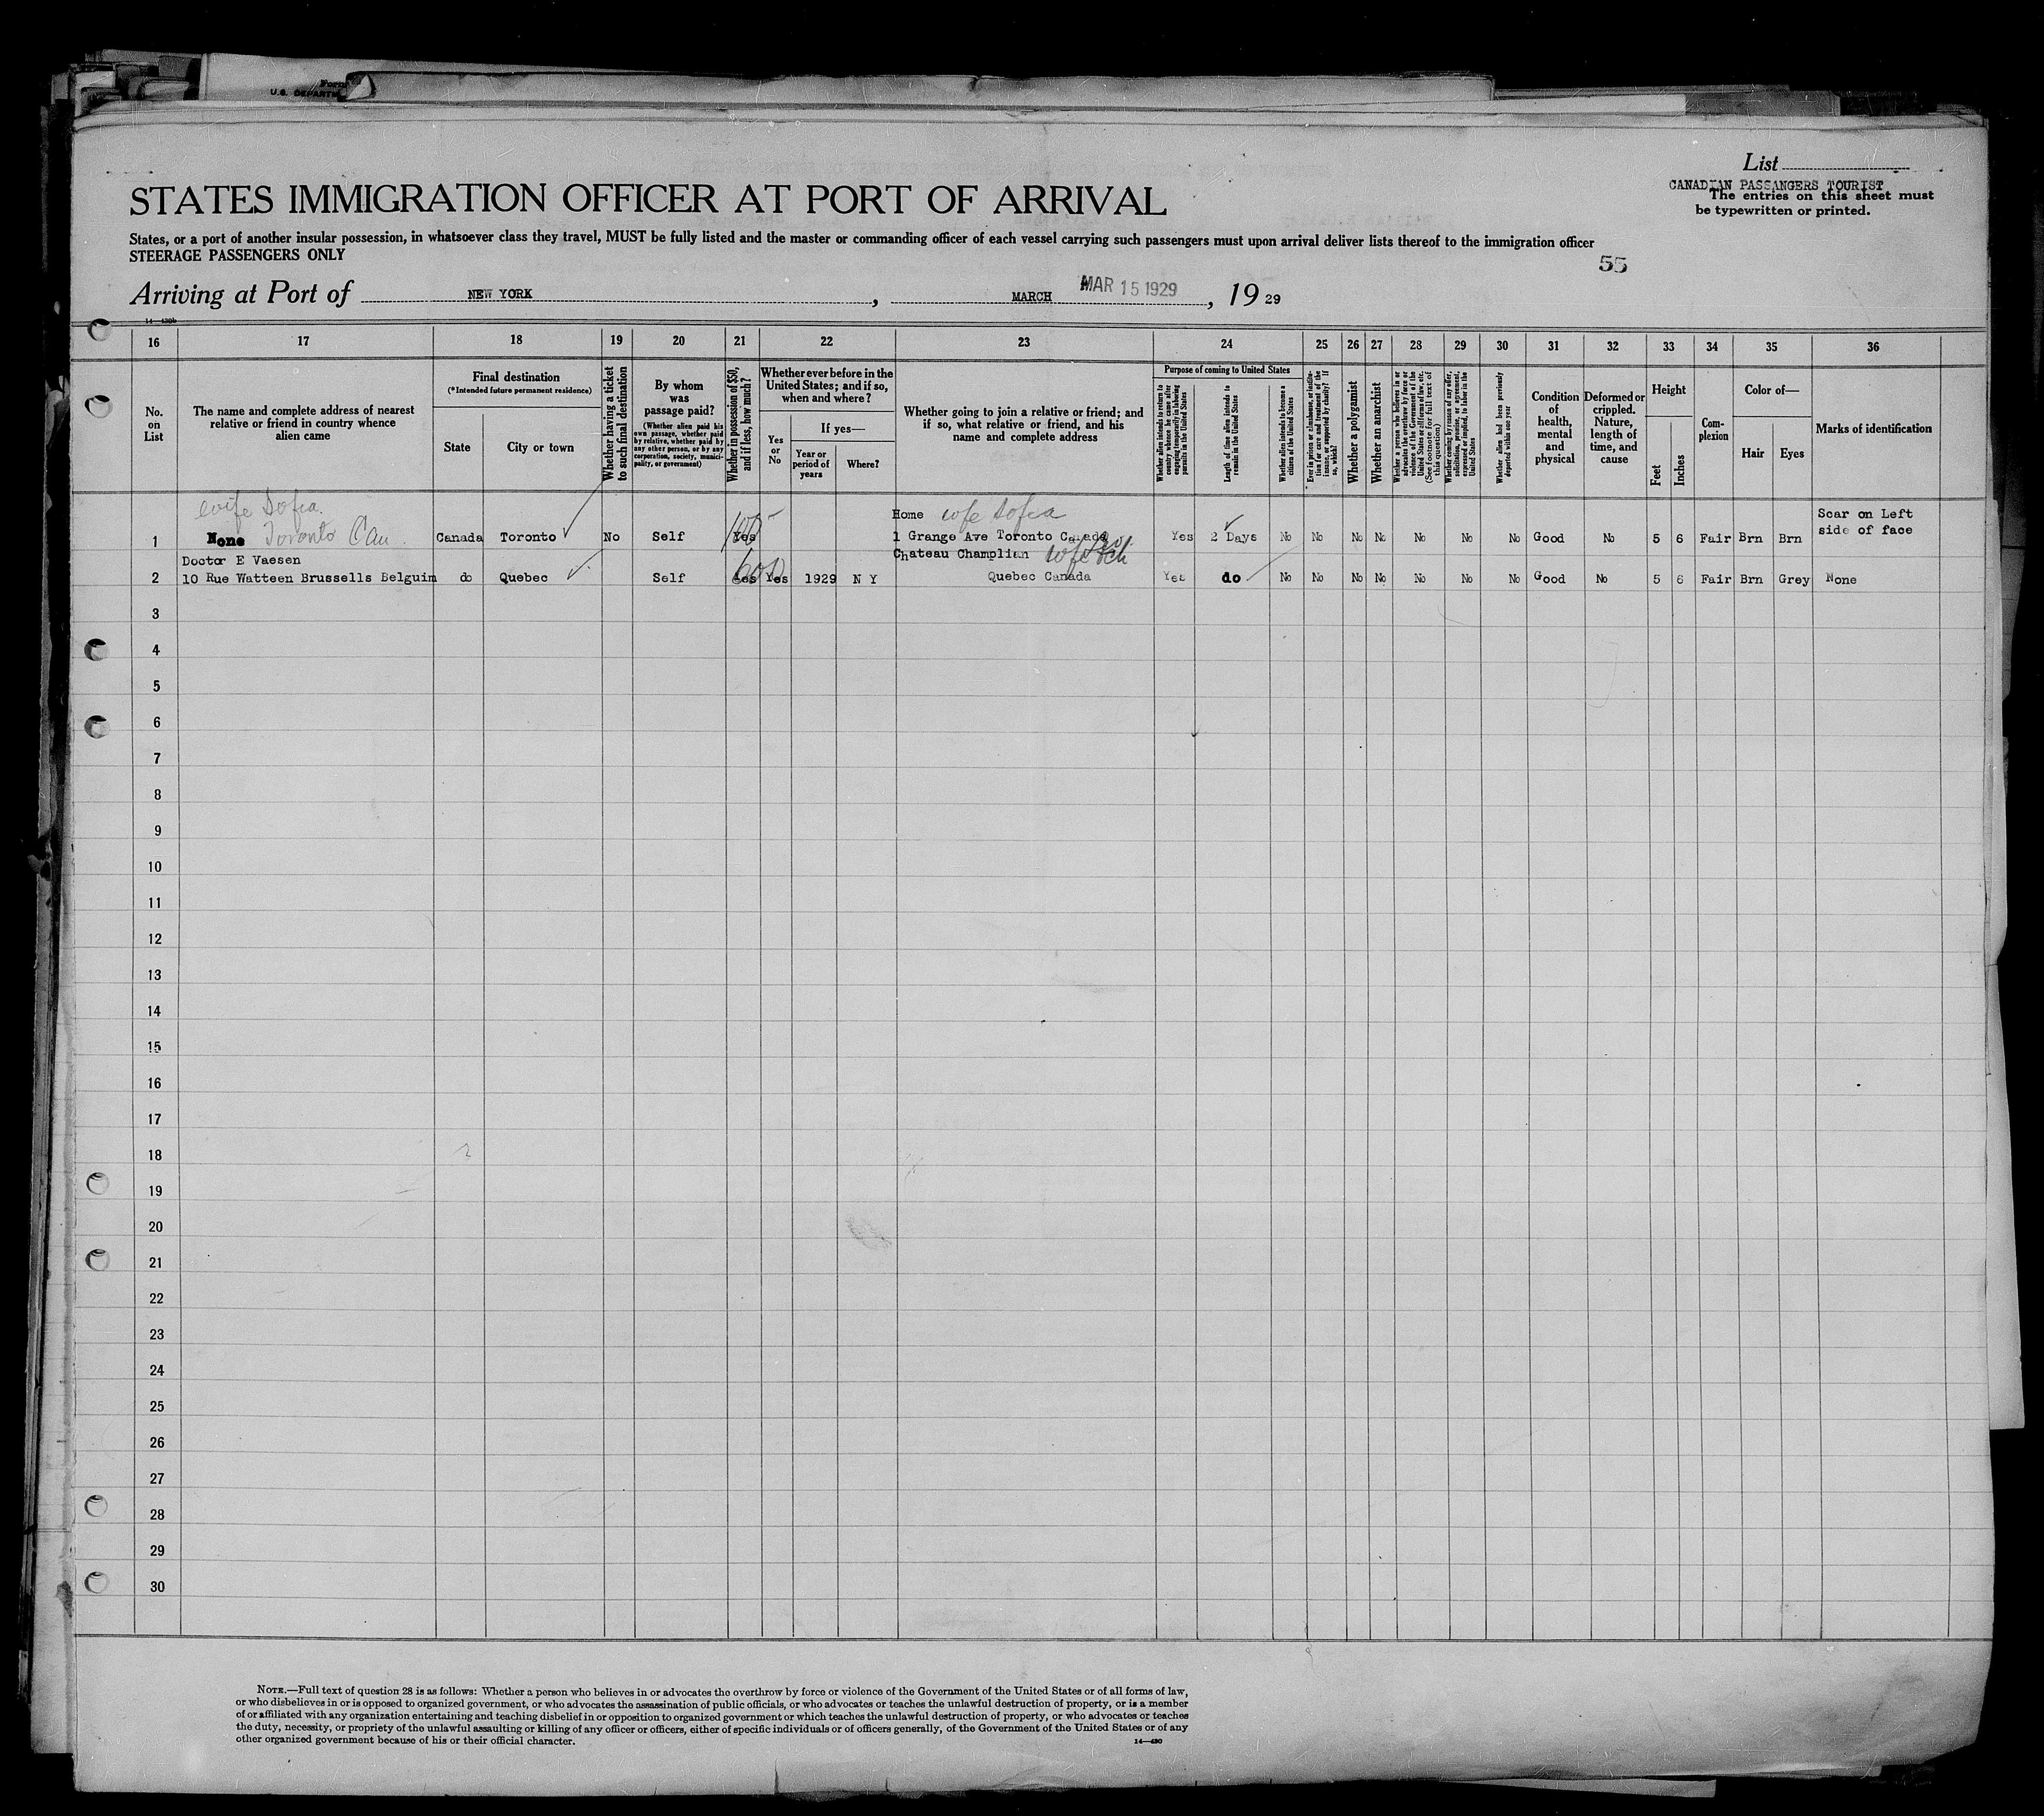 Form
U.S. DEPARTM
List
CANADIAN PASSANGERS TOURIST
The entries on this sheet must
be typewritten or printed.
STATES IMMIGRATION OFFICER AT PORT OF ARRIVAL
States, or a port of another insular possession, in whatsoever class they travel, MUST be fully listed and the master or commanding officer of each vessel carrying such passengers must upon arrival deliver lists thereof to the immigration officer
STEERAGE PASSENGERS ONLY
55
Arriving at Port of NEW YORK, MARCH MAR 15 1929, 19 29
14—430b
16 17 18 19 20 21 22 23 24 25 26 27 28 29 30 31 32 33 34 35 36
No. on List
The name and complete address of nearest relative or friend in country whence alien came
Final destination
(*Intended future permanent residence)
State
City or town
Whether having a ticket to such final destination
By whom was passage paid?
(Whether alien paid his own passage, whether paid by relative, whether paid by any other person, or by any corporation, society, municipality, or government)
Whether in possession of $50, and if less, how much?
Whether ever before in the United States; and if so, when and where?
Yes or No
If yes—
Year or period of years
Where?
Whether going to join a relative or friend; and if so, what relative or friend, and his name and complete address
Purpose of coming to United States
Whether alien intends to return to country whence he came after engaging temporarily in laboring pursuits in the United States
Length of time alien intends to remain in the United States
Whether alien intends to become a citizen of the United States
Ever in prison or almshouse, or institution for care and treatment of the insane, or supported by charity? If so, which?
Whether a polygamist
Whether an anarchist
Whether a person who believes in or advocates the overthrow by force or violence of the Government of the United States or all forms of law, etc. (See footnote for full text of this question)
Whether coming by reason of any offer, solicitation, promise, or agreement, expressed or implied, to labor in the United States
Whether alien had been previously deported within one year
Condition of health, mental and physical
Deformed or crippled. Nature, length of time, and cause
Height
Feet
Inches
Complexion
Color of—
Hair
Eyes
Marks of identification
wife Sofia.
Home wfe Sofia
Scar on Left
1 None Toronto Can. Canada Toronto No Self Yes 100 1 Grange Ave Toronto Canada Yes 2 Days No No No No No No No Good No 5 6 Fair Brn Brn side of face
Doctor E Vaesen
Chateau Champlian wfe
2 10 Rue Watteen Brussells Belguim do Quebec Self Yes 60 Yes 1929 N Y Quebec Canada Yes do No No No No No No No Good No 5 6 Fair Brn Grey None
3
4
5
6
7
8
9
10
11
12
13
14
15
16
17
18
19
20
21
22
23
24
25
26
27
28
29
30
NOTE.—Full text of question 28 is as follows: Whether a person who believes in or advocates the overthrow by force or violence of the Government of the United States or of all forms of law,
or who disbelieves in or is opposed to organized government, or who advocates the assassination of public officials, or who advocates or teaches the unlawful destruction of property, or is a member
of or affiliated with any organization entertaining and teaching disbelief in or opposition to organized government or which teaches the unlawful destruction of property, or who advocates or teaches
the duty, necessity, or propriety of the unlawful assaulting or killing of any officer or officers, either of specific individuals or of officers generally, of the Government of the United States or of any
other organized government because of his or their official character.
14—430